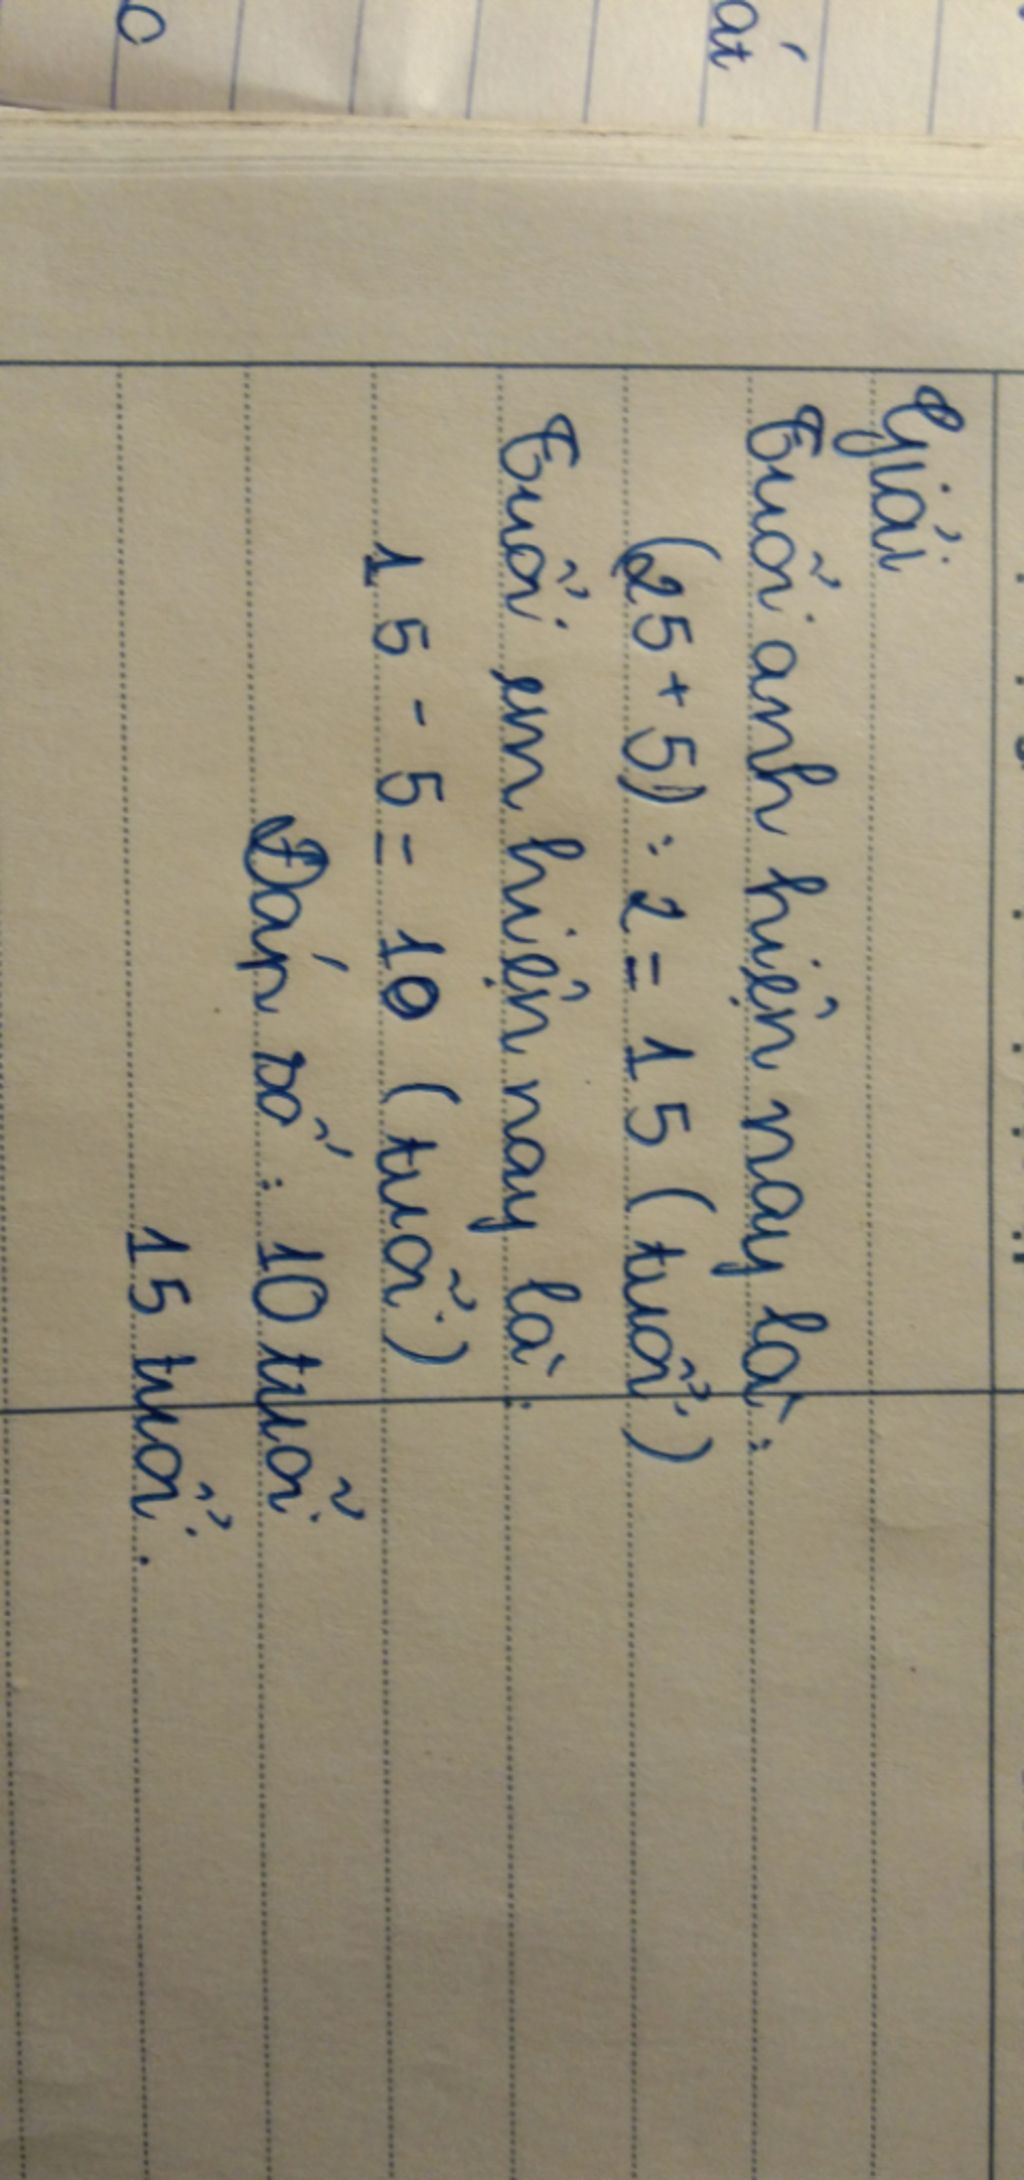 Giải
Tuổi anh hiện nay là:
(25 + 5) : 2 = 15 (tuổi)
Tuổi em hiện nay là:
15 - 5 = 10 (tuổi)
Đáp số: 10 tuổi
15 tuổi.